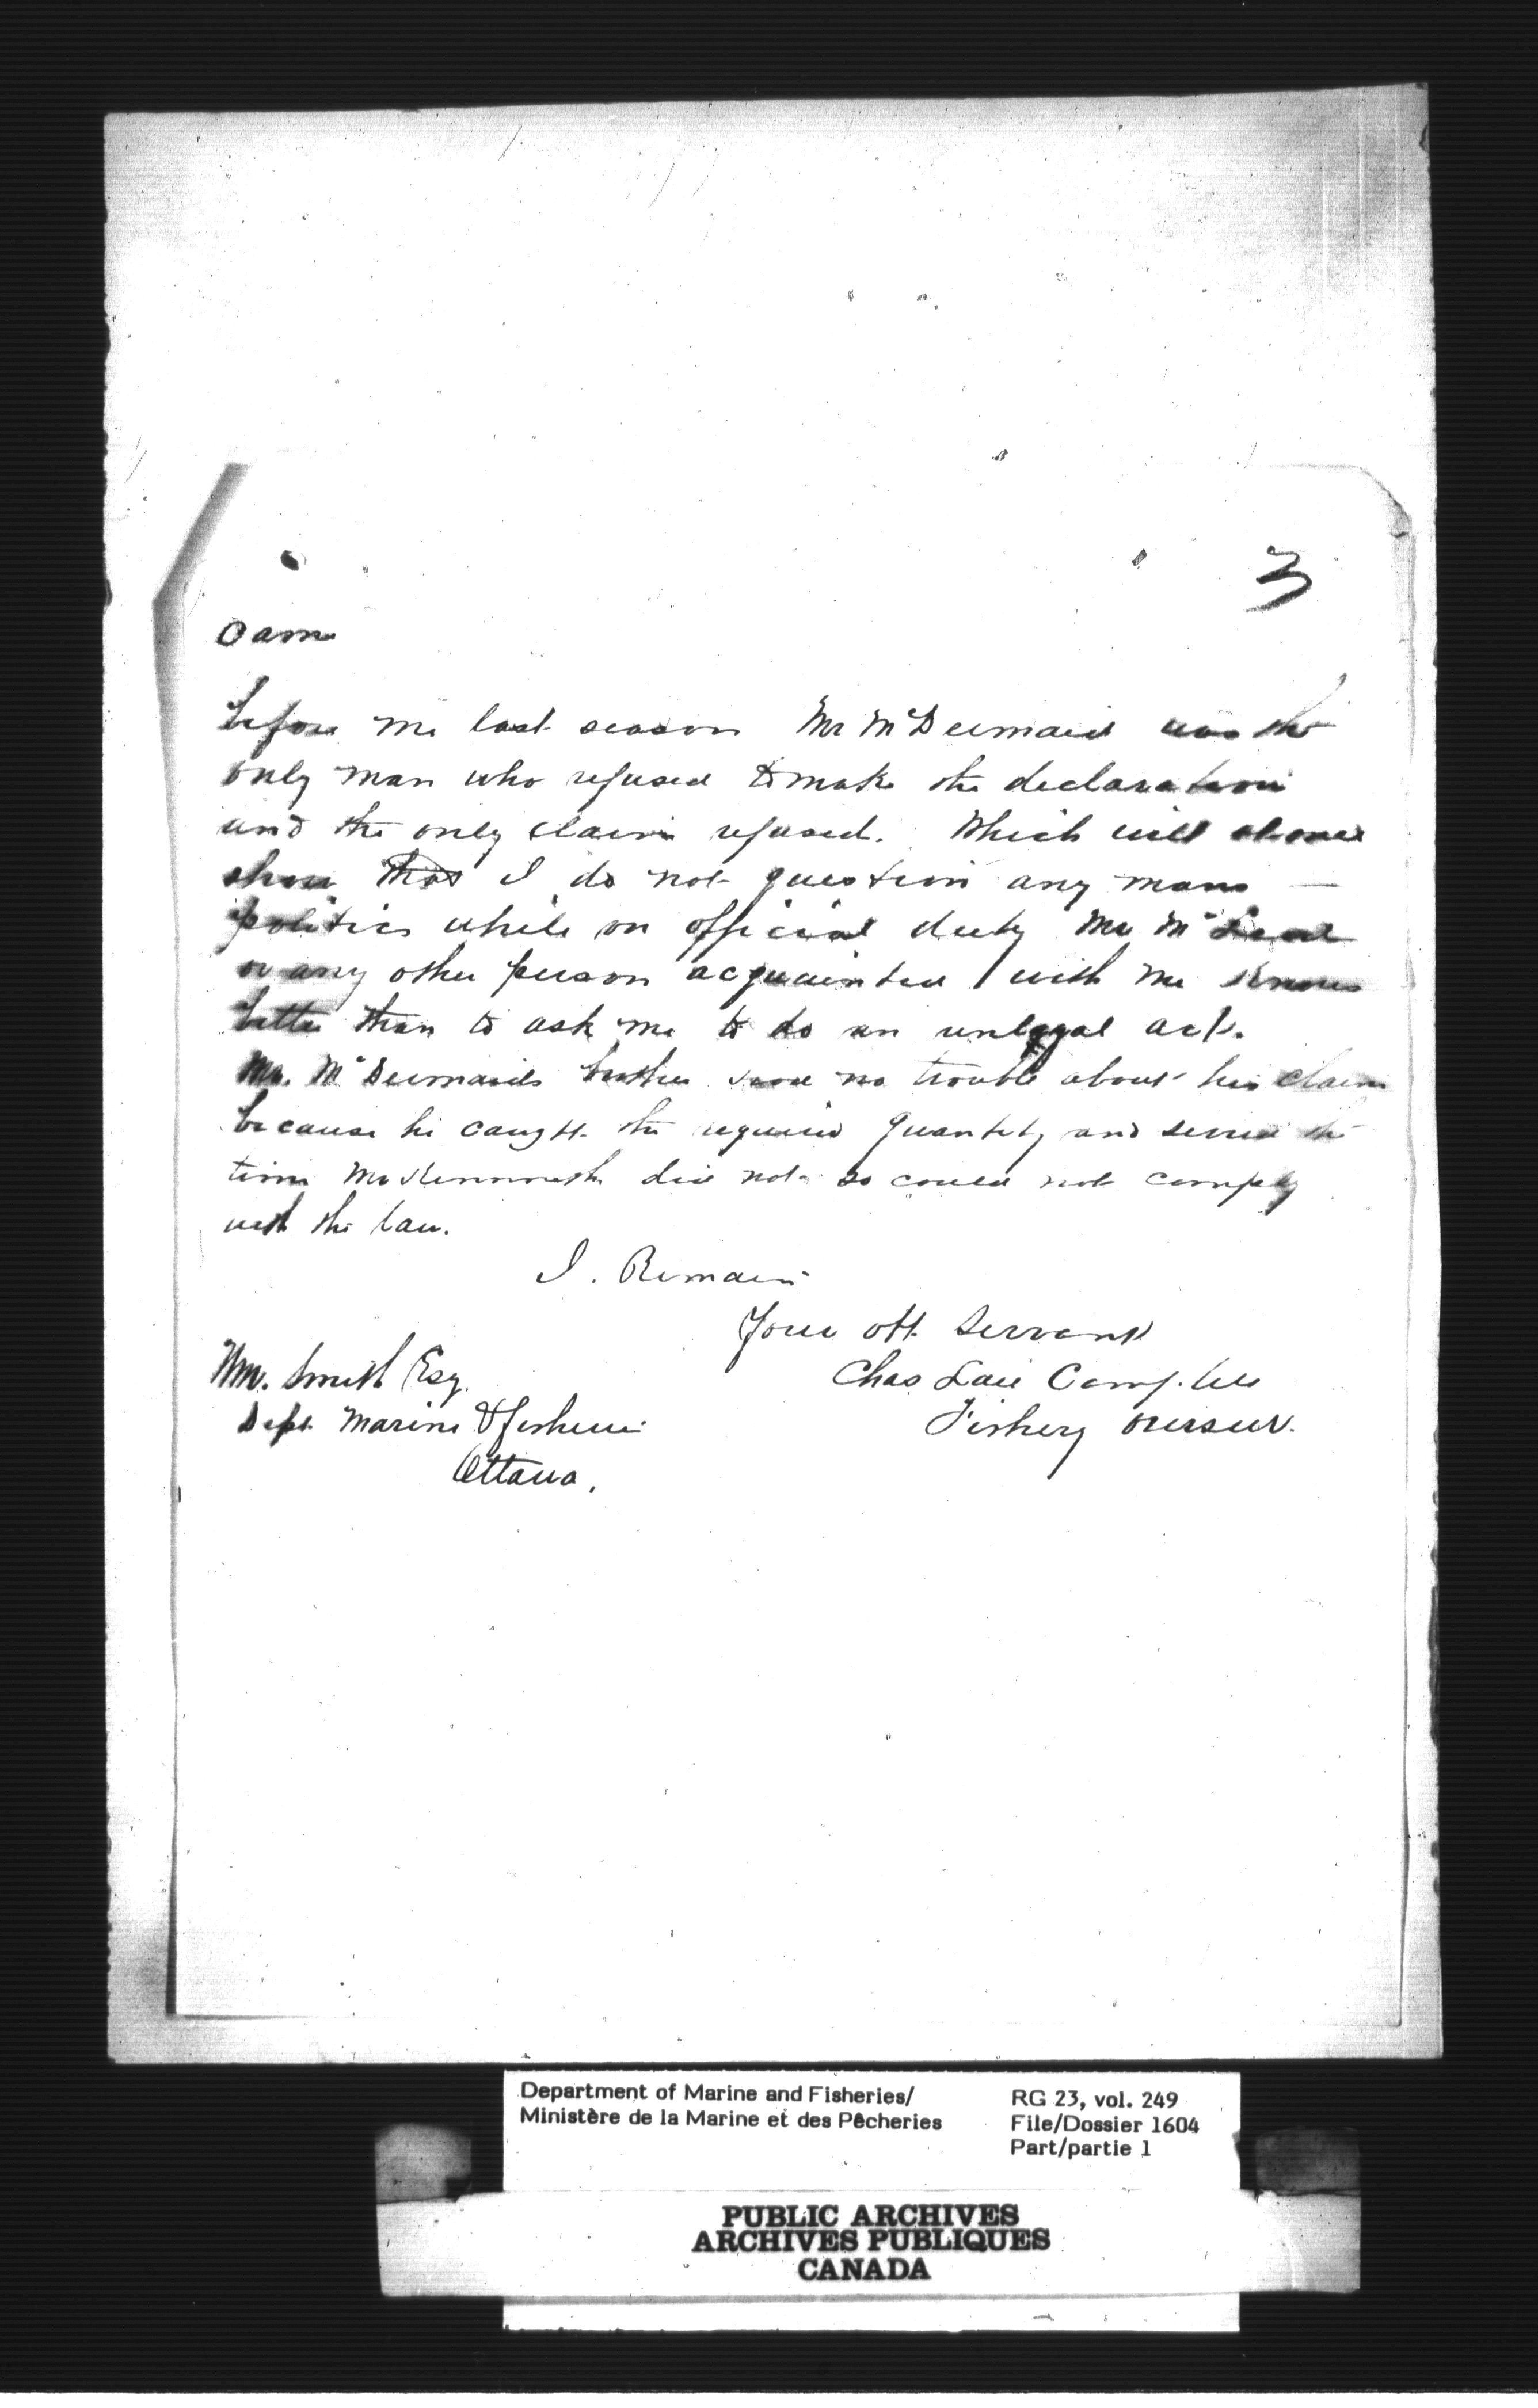 3
came
before me last season Mr McDermaid was the
only man who refused to make the declaration
and the only claim refused. Which will
show that I do not question any mans —
politics while on official duty Mr Mc
or any other person acquainted with me knows
better than to ask me to do an unlegal act.
Mr. McDermaids brother had no trouble about his claim
because he caught the required quantity and served the
time Mr did not so could not comply
with the law.
I. Remain
Your obt. Servant
Chas
Fishery Overseer.
Wm. Smith Esq.
Dept. Marine & fisheries
Ottawa.
Department of Marine and Fisheries/
Ministère de la Marine et des Pêcheries
RG 23, vol. 249
File/Dossier 1604
Part/partie 1
PUBLIC ARCHIVES
ARCHIVES PUBLIQUES
CANADA